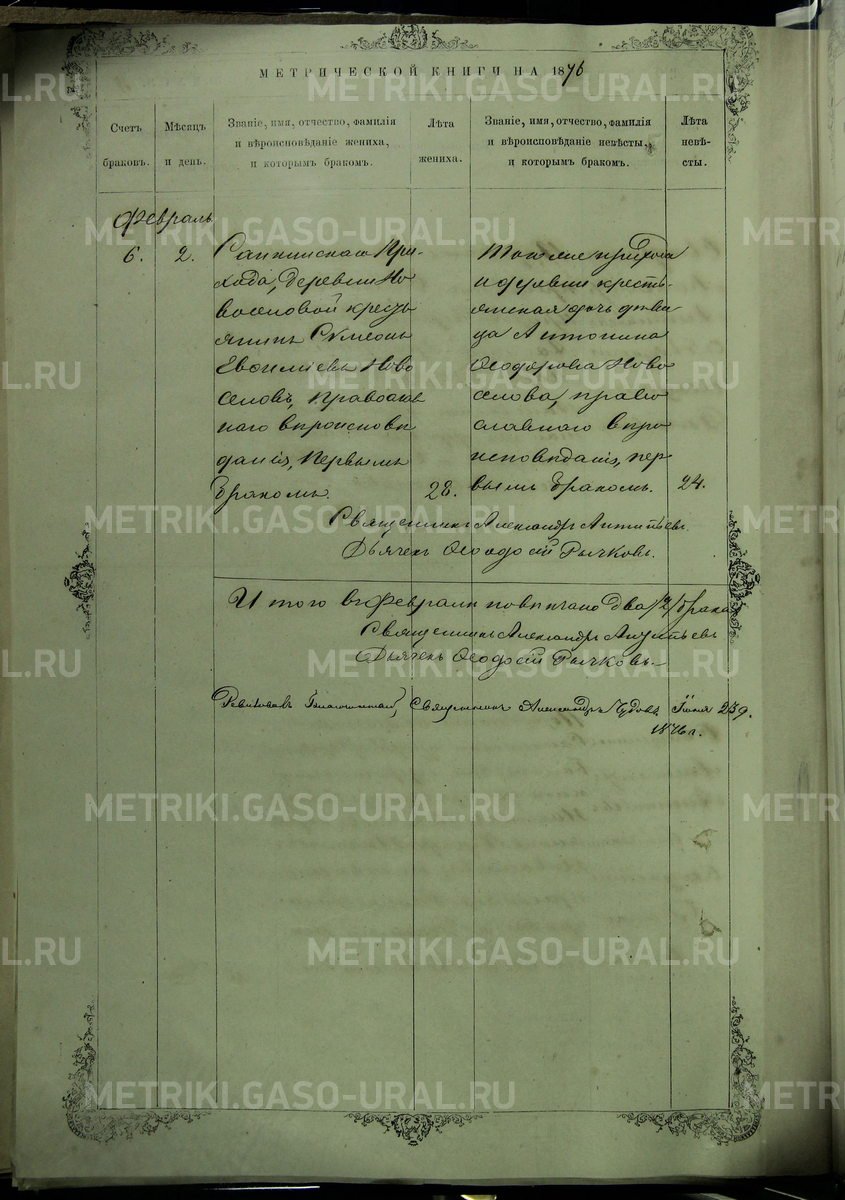 МЕТРИЧЕСКОЙ КНИГИ НА 1876
Счетъ
браковъ.
Мѣсяцъ
и день.
Званіе, имя, отчество, фамилія
и вѣроисповѣданіе жениха,
и которымъ бракомъ.
Лѣта
жениха.
Званіе, имя, отчество, фамилія
и вѣроисповѣданіе невѣсты,
и которымъ бракомъ.
Лѣта
невѣ-
сты.
Февраль
6.
2.
При-
хода, деревни Но
воселовой кресть
янинъ Сѵмеонъ
Евѳиміевъ Ново
селовъ, Православ
наго вѣроисповѣ
данія, Первымъ
бракомъ.
28.
Тойже прихода
и деревни кресть-
янская дочь дѣви
ца Антонина
Ѳеодорова Ново
селова, право
славнаго вѣро
исповѣданія, пер
вымъ бракомъ.
24.
Священникъ Александръ
Дьячекъ Ѳеодосій Рычковъ.
Итого въ Февралѣ повѣнчано два /2/ брака
Священникъ Александръ
Дьячекъ Ѳеодосій Рычковъ.
Священникъ Александръ Чудовъ, Іюня
1876 г.
METRIKI.GASO-URAL.RU